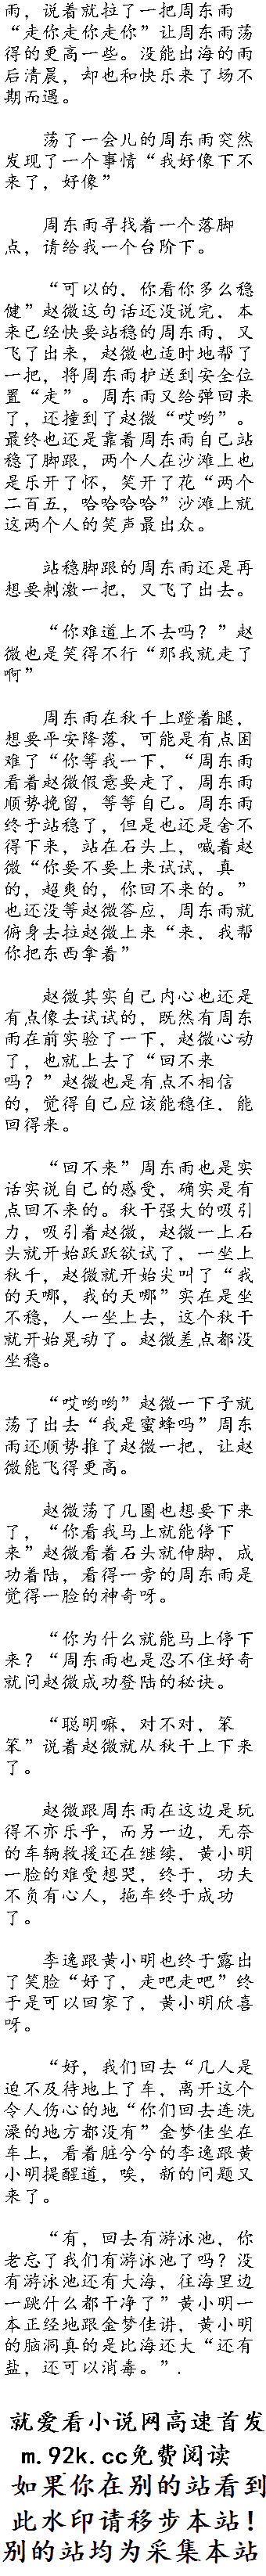 雨，说着就拉了一把周东雨
“走你走你走你”让周东雨荡
得的更高一些。没能出海的雨
后清晨，却也和快乐来了场不
期而遇。
荡了一会儿的周东雨突然
发现了一个事情“我好像下不
来了，好像”
周东雨寻找着一个落脚
点，请给我一个台阶下。
“可以的，你看你多么稳
健”赵微这句话还没说完，本
来已经快要站稳的周东雨，又
飞了出来，赵微也适时地帮了
一把，将周东雨护送到安全位
置“走”。周东雨又给弹回来
了，还撞到了赵微“哎哟”。
最终也还是靠着周东雨自己站
稳了脚跟，两个人在沙滩上也
是乐开了怀，笑开了花“两个
二百五，哈哈哈哈”沙滩上就
这两个人的笑声最出众。
站稳脚跟的周东雨还是再
想要刺激一把，又飞了出去。
“你难道上不去吗？”赵
微也是笑得不行“那我就走了
啊”
周东雨在秋千上蹬着腿，
想要平安降落，可能是有点困
难了“你等我一下，“周东雨
看着赵微假意要走了，周东雨
顺势挽留，等等自己。周东雨
终于站稳了，但是也还是舍不
得下来，站在石头上，喊着赵
微“你要不要上来试试，真
的，超爽的，你回不来的。”
也还没等赵微答应，周东雨就
俯身去拉赵微上来“来，我帮
你把东西拿着”
赵微其实自己内心也还是
有点像去试试的，既然有周东
雨在前实验了一下，赵微心动
了，也就上去了“回不来
吗？”赵微也是有点不相信
的，觉得自己应该能稳住，能
回得来。
“回不来”周东雨也是实
话实说自己的感受，确实是有
点回不来的。秋千强大的吸引
力，吸引着赵微，赵微一上石
头就开始跃跃欲试了，一坐上
秋千，赵微就开始尖叫了“我
的天哪，我的天哪”实在是坐
不稳，人一坐上去，这个秋千
就开始晃动了。赵微差点都没
坐稳。
“哎哟哟”赵微一下子就
荡了出去“我是蜜蜂吗”周东
雨还顺势推了赵微一把，让赵
微能飞得更高。
赵微荡了几圈也想要下来
了，“你看我马上就能停下
来”赵微看着石头就伸脚，成
功着陆，看得一旁的周东雨是
觉得一脸的神奇呀。
“你为什么就能马上停下
来？“周东雨也是忍不住好奇
就问赵微成功登陆的秘诀。
“聪明嘛，对不对，笨
笨”说着赵微就从秋千上下来
了。
赵微跟周东雨在这边是玩
得不亦乐乎，而另一边，无奈
的车辆救援还在继续，黄小明
一脸的难受想哭，终于，功夫
不负有心人，拖车终于成功
了。
李逸跟黄小明也终于露出
了笑脸“好了，走吧走吧”终
于是可以回家了，黄小明欣喜
呀。
“好，我们回去“几人是
迫不及待地上了车，离开这个
令人伤心的地“你们回去连洗
澡的地方都没有”金梦佳坐在
车上，看着脏兮兮的李逸跟黄
小明提醒道，唉，新的问题又
来了。
“有，回去有游泳池，你
老忘了我们有游泳池了吗？没
有游泳池还有大海，往海里边
一跳什么都干净了”黄小明一
本正经地跟金梦佳讲，黄小明
的脑洞真的是比海还大“还有
盐，还可以消毒。”．
就爱看小说网高速首发
m.92k.cc免费阅读
如果你在别的站看到
此水印请移步本站！
别的站均为采集本站